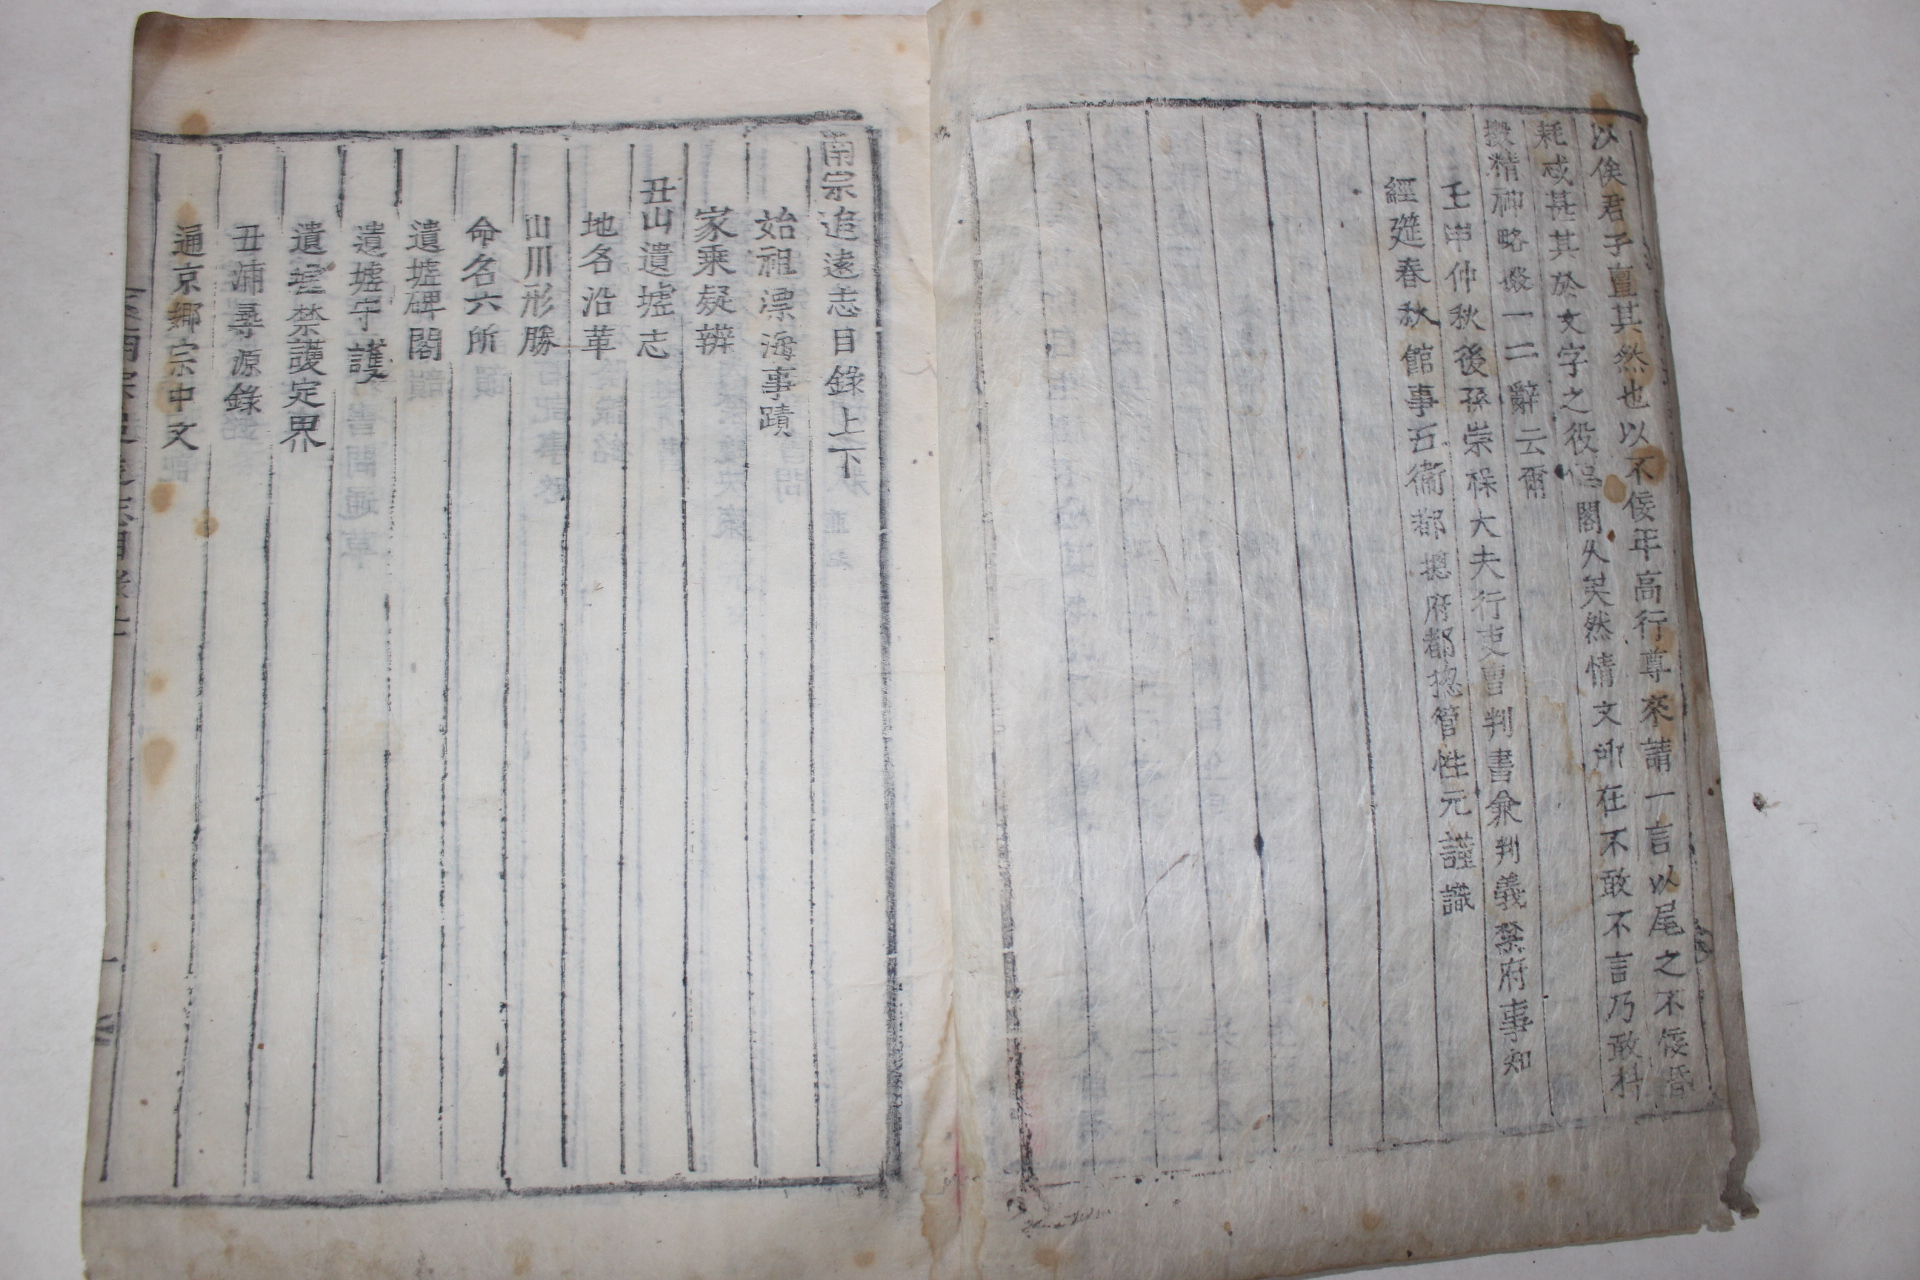 以俟君子亶其然也以不佞年高行尊來請一言以尾之不佞昏
耗忒甚其於文字之役倨閣久矣然情文所在不敢不言乃敢抖
擻精神略綴一二辭云爾
壬申仲秋後孫崇祿大夫行吏曹判書兼判義禁府事知
經筵春秋館事五衛都摠府都摠管性元謹識
南宗追遠志目錄上下
始祖漂海事蹟
家乘疑辨
丑山遺墟志
地名沿革
山川形勝
命名六所
遺墟碑閣
遺墟守護
遺墟禁護定界
丑浦尋源錄
通京鄉宗中文